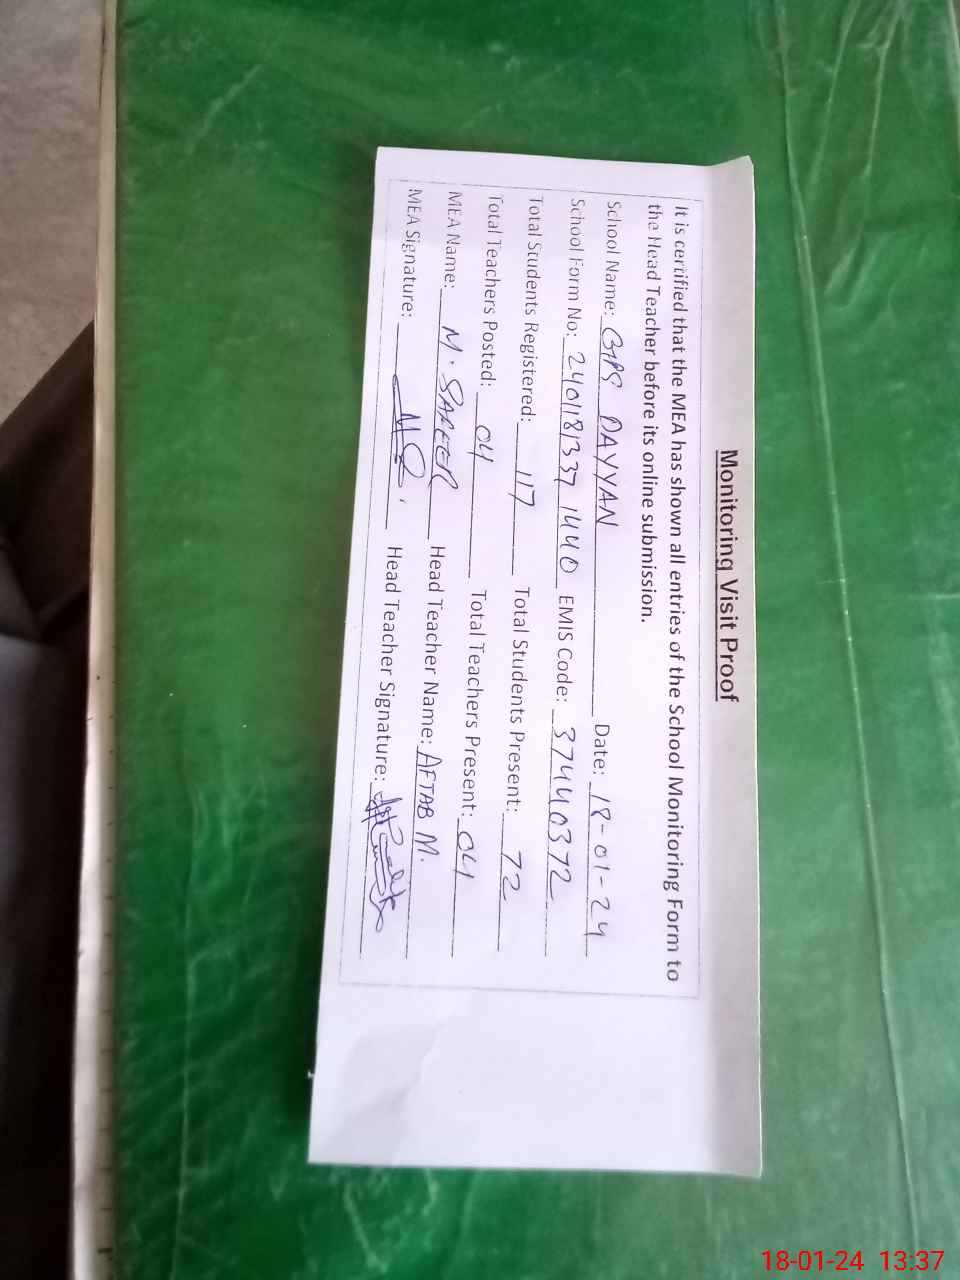 Monitoring Visit Proof
It is certified that the MEA has shown all entries of the School Monitoring Form to
the Head Teacher before its online submission.
School Name: GPS DAYYAN Date: 18-01-24
School Form No: 2401181337 1440 EMIS Code: 37440372
Total Students Registered: 117 Total Students Present: 72
Total Teachers Posted: 04 Total Teachers Present: 04
MEA Name: M. SAFEER Head Teacher Name: AFTAB M.
MEA Signature: MS Head Teacher Signature:
18-01-24 13:37